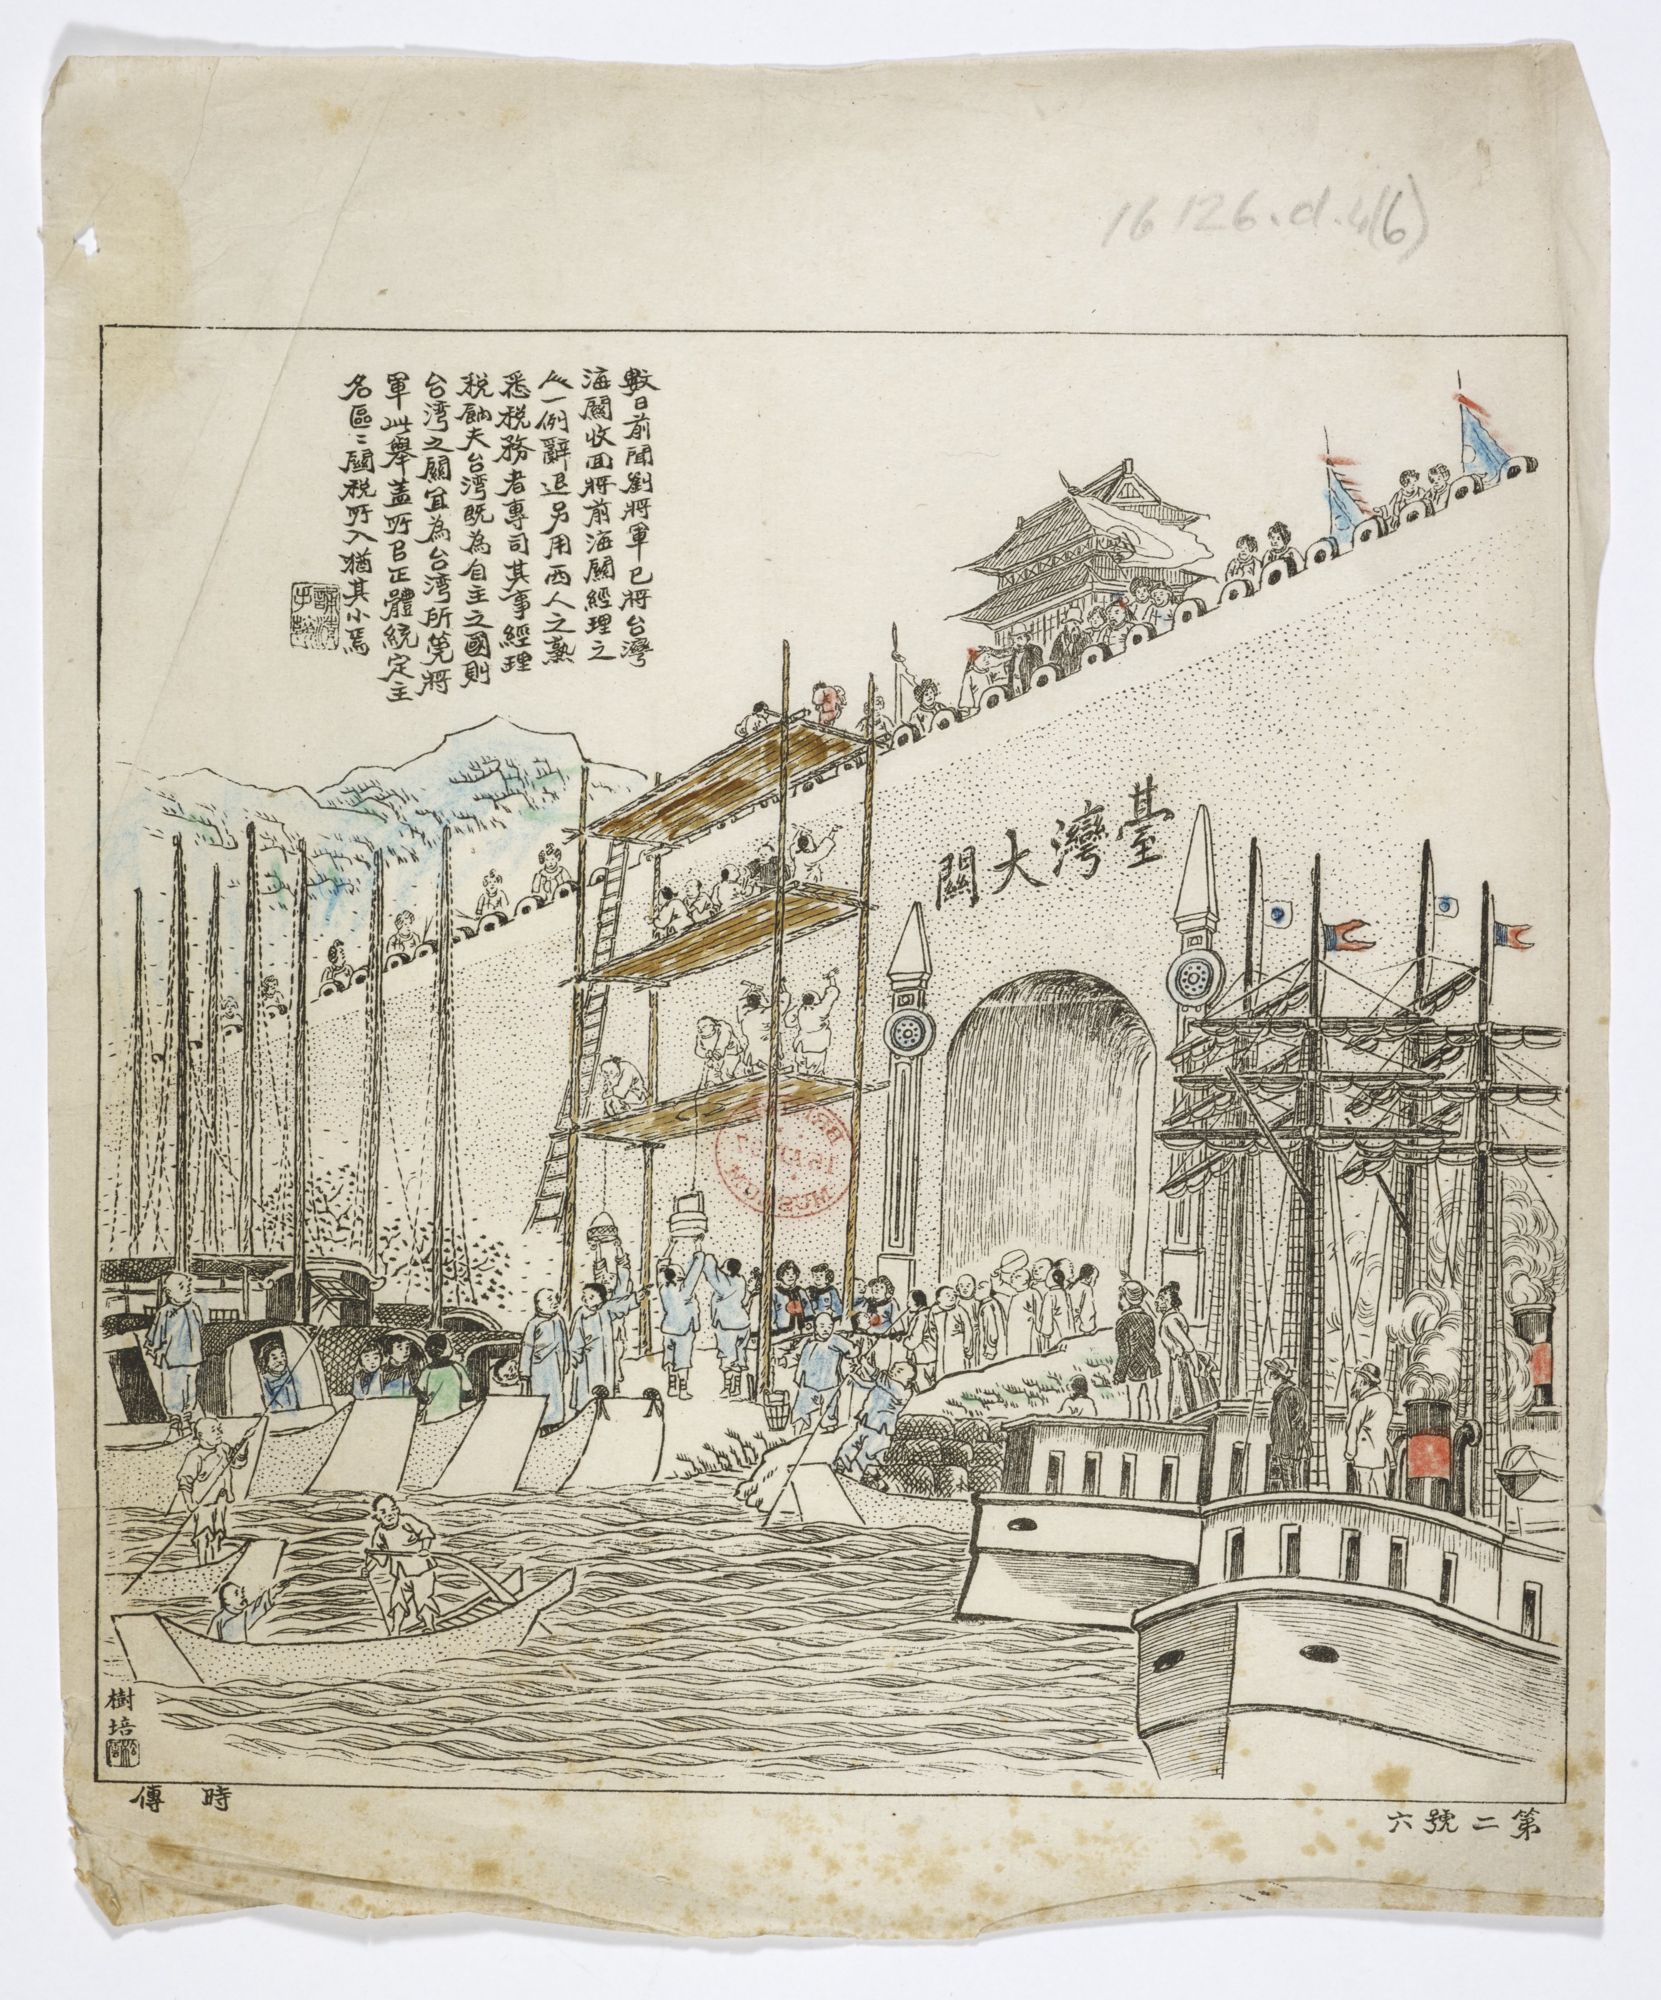 16126.d.4(6)
數日前聞劉將軍已將台灣
海關收回將前海關經理之
人一例辭退另用西人之熟
悉税務者專司其事經理
税餉夫台灣既為自主之國則
台灣之關宜為台灣所筦將
軍此舉蓋所㠯正體統定主
名區〻關税所入猶其小焉
臺灣大關
樹培
時傳
第二號六